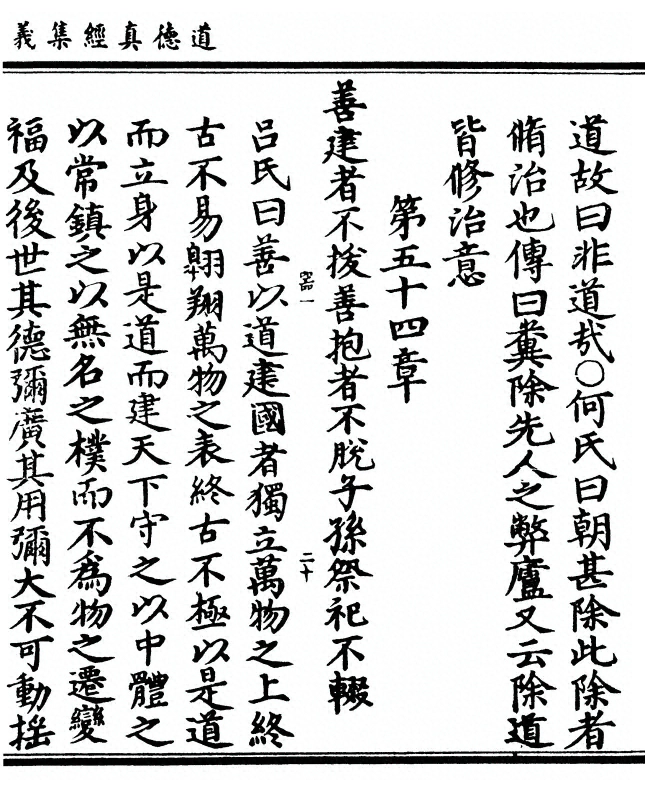 道德真經集義
道故曰非道哉○何氏曰朝甚除此除者
脩治也傳曰糞除先人之弊廬又云除道
皆修治意
第五十四章
善建者不拔善抱者不脫子孫祭祀不輟
一
二十
吕氏曰善以道建國者獨立萬物之上終
古不易翱翔萬物之表終古不極以是道
而立身以是道而建天下守之以中體之
以常鎮之以無名之樸而不爲物之遷變
福及後世其德彌廣其用彌大不可動摇